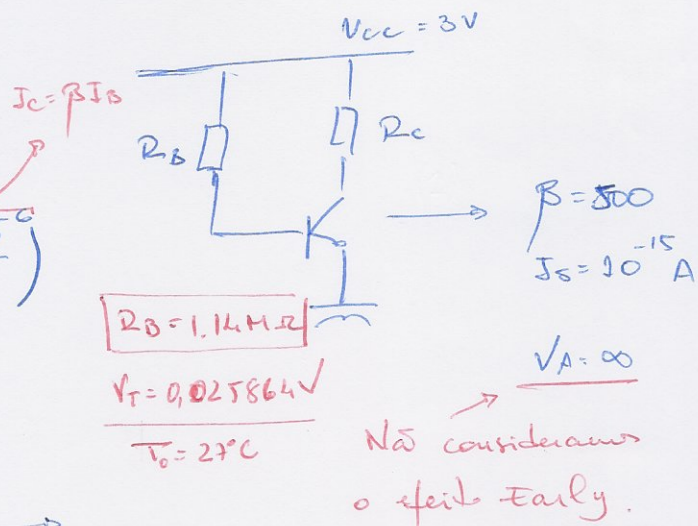 VCC = 3V
IC = βIB
RB
RC
β = 500
IS = 10^-15 A
RB = 1.14 MΩ
VT = 0,025864V
T0 = 27°C
VA = ∞
Não consideramos
o efeito Early.